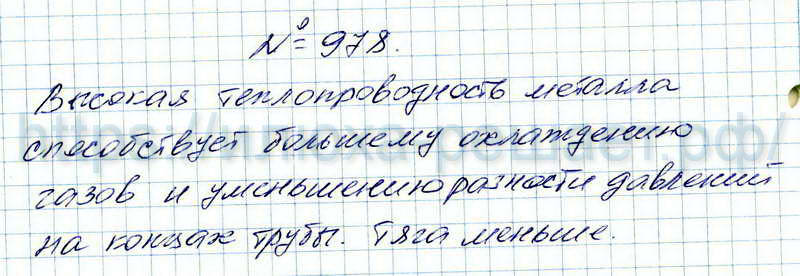 № 978.
Высокая теплопроводность металла
способствует большему охлаждению
газов и уменьшению разности давлений
на концах трубы. Тяга меньше.